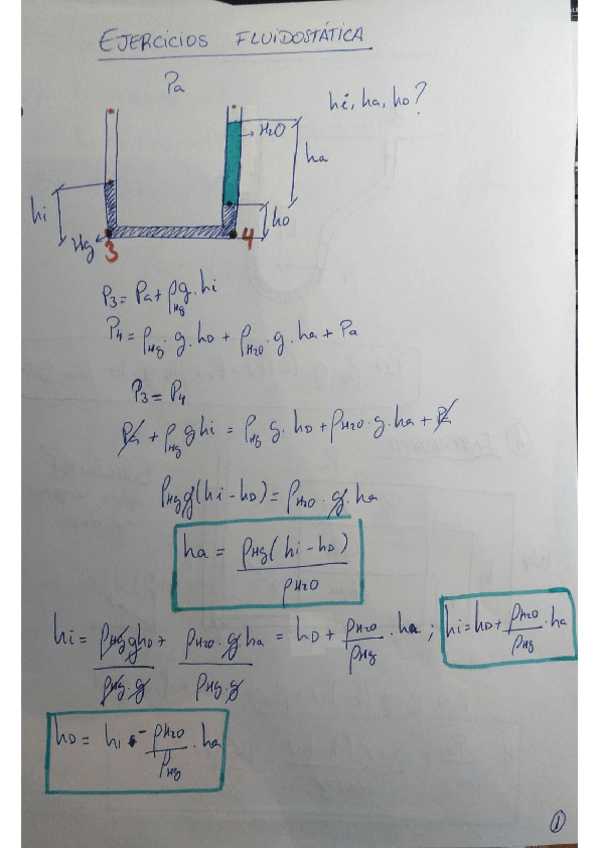 EJERCICIOS FLUIDOSTÁTICA
Pa
hi, ha, hD?
H2O
ha
hi
hD
Hg
3
4
P3 = Pa + ρHg g · hi
P4 = ρHg · g · hD + ρH2O · g · ha + Pa
P3 = P4
Pa + ρHg g hi = ρHg · g · hD + ρH2O · g · ha + Pa
ρHg g (hi - hD) = ρH2O · g · ha
ha = ρHg (hi - hD) / ρH2O
hi = ρHg g hD / ρHg · g + ρH2O · g ha / ρHg · g = hD + ρH2O / ρHg · ha ; hi = hD + ρH2O / ρHg · ha
hD = hi - ρH2O / ρHg · ha
1